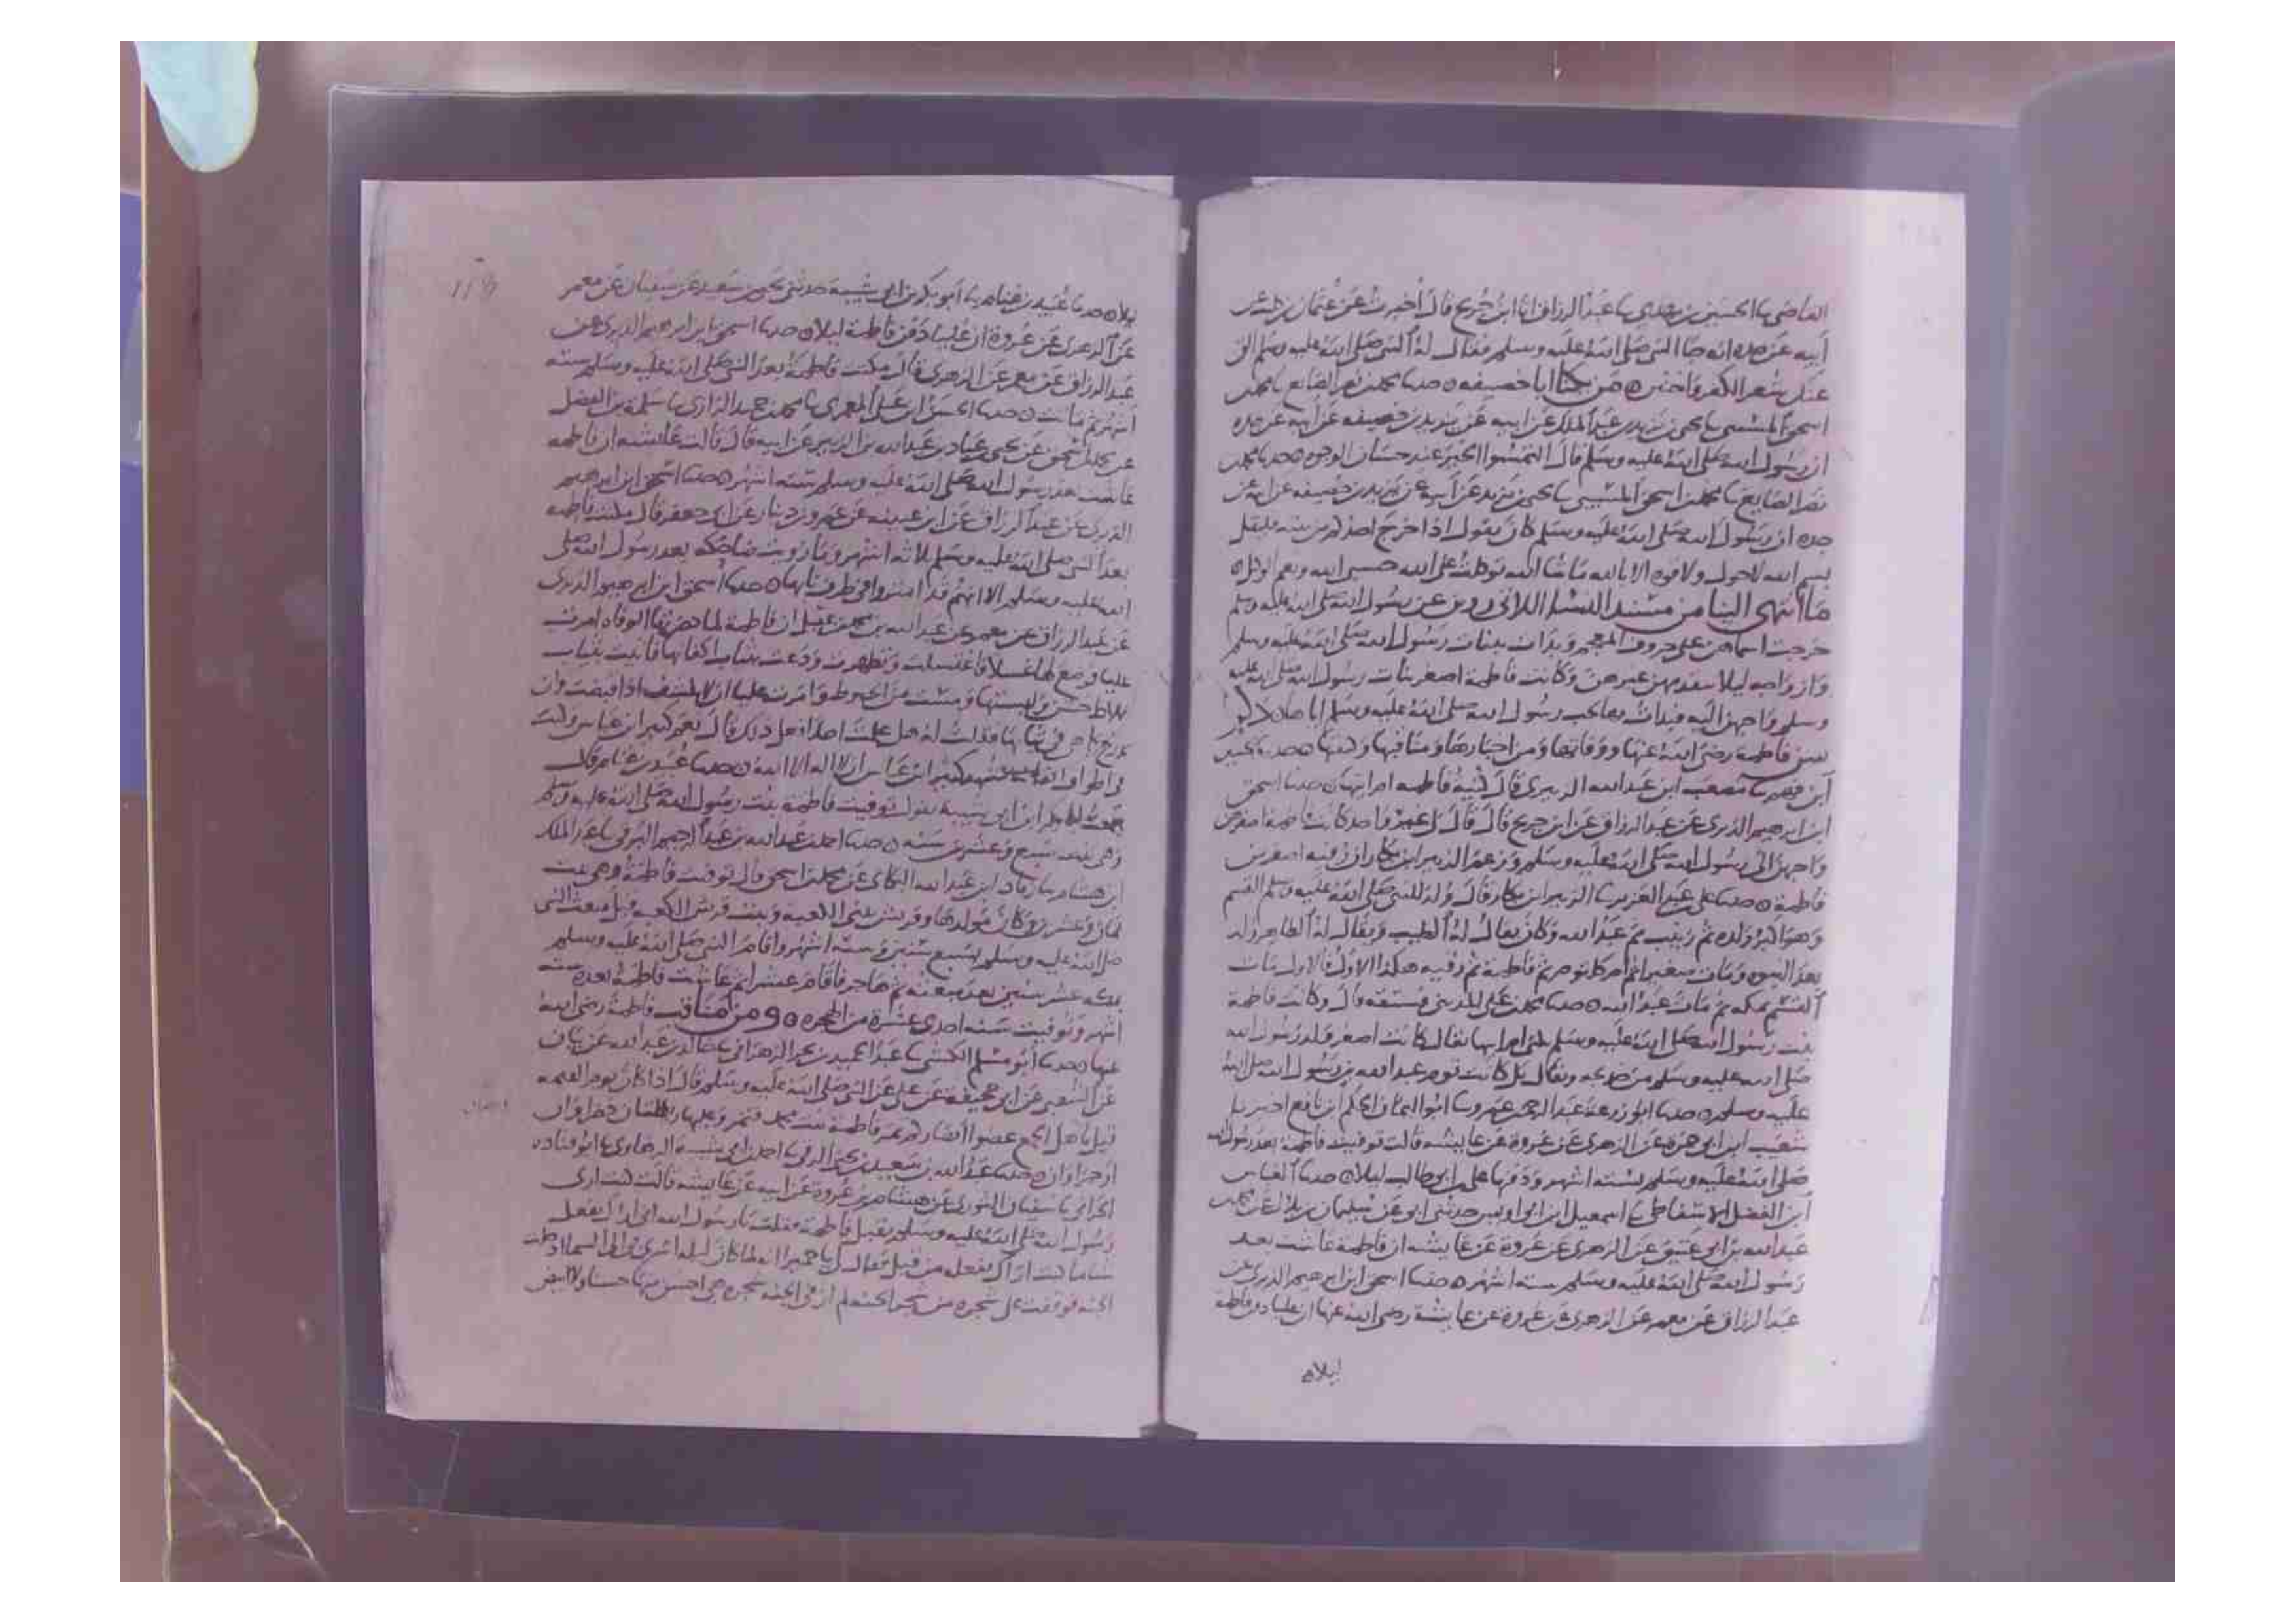 القاضي ثنا الحسين بن مهدي ثنا عبد الرزاق انا ابن جريج قال أخبرت عن عثيم بن كليب عن
أبيه عن جده انه جا النبي صلى الله عليه وسلم فقال له النبي صلى الله عليه وسلم الق
عنك شعر الكفر واختتن ه من يكنا ابا خصيفه ه حدثنا محمد بن نصر الصايغ ثنا محمد بن
اسحق المسيبي ثنا يحيى بن يزيد بن عبد الملك عن ابيه عن يزيد بن خصيفه عن ابيه عن جده
ان رسول الله صلى الله عليه وسلم قال التمسوا الخير عند حسان الوجوه ه حدثنا محمد بن
نصر الصايغ ثنا محمد بن اسحق المسيبي ثنا يحيى بن يزيد عن ابيه عن يزيد بن خصيفه عن ابيه عن
جده ان رسول الله صلى الله عليه وسلم كان يقول اذا خرج احدكم من بيته فليقل
بسم الله لا حول ولا قوه الا بالله ما شا الله توكلت على الله حسبي الله ونعم الوكيل ه
ما انتهى الينا من مسند النساء اللاتي روين عن رسول الله صلى الله عليه وسلم
خرجت اسماهن على حروف المعجم وبدات ببنات رسول الله صلى الله عليه وسلم
وازواجه ليلا يتقدمهن غيرهن وكانت فاطمة اصغر بنات رسول الله صلى الله عليه
وسلم واحبهن اليه فبدات بها لحب رسول الله صلى الله عليه وسلم اياها ه ذكر
سن فاطمه رضي الله عنها ووفاتها ومن اخبارها ومناقبها وكنيتها ه حدثنا محمد بن علي
ابن ثنا مصعب ابن عبد الله الزبيري قال كنيه فاطمه ام ابيها ه حدثنا اسحق
ابن ابرهيم الدبري عن عبد الرزاق عن ابن جريج قال قال لي غير واحد كانت فاطمة اصغرهن
واحبهن الى رسول الله صلى الله عليه وسلم وزعم الزبير ابن بكار ان رقيه اصغر من
فاطمة ه حدثنا علي بن عبد العزيز ثنا الزبير ابن بكار قال ولد للنبي صلى الله عليه وسلم القسم
وهو اكبر ولده ثم زينب ثم عبد الله وكان يقال له الطيب ويقال له الطاهر ولد
بعد النبوه ومات صغيرا ثم ام كلثوم ثم فاطمة ثم رقيه هكذا الاول فالاول مات
القسم بمكه ثم مات عبد الله ه حدثنا محمد بن علي المديني فستقه قال وكانت فاطمة
بنت رسول الله صلى الله عليه وسلم تكنى ام ابيها يقال كانت اصغر ولد رسول الله
صلى الله عليه وسلم من خديجه ويقال بل كانت توم عبد الله بن رسول الله صلى الله
عليه وسلم ه حدثنا ابو زرعة عبد الرحمن بن عمرو ثنا ابو اليمان الحكم ابن نافع اخبرنا
شعيب ابن ابي حمزه عن الزهري عن عروة عن عايشه قالت توفيت فاطمة بعد رسول الله
صلى الله عليه وسلم بسته اشهر ودفنها علي ابن ابي طالب ليلا ه حدثنا العباس
ابن الفضل الاسفاطي ثنا اسمعيل ابن ابي اويس حدثني ابي عن سليمان بن بلال عن محمد بن
عبد الله بن ابي عتيق عن الزهري عن عروة عن عايشه ان فاطمة عاشت بعد
رسول الله صلى الله عليه وسلم سته اشهر ه حدثنا اسحق ابن ابرهيم الدبري عن
عبد الرزاق عن معمر عن الزهري عن عروة عن عايشة رضي الله عنها ان عليا دفن فاطمة
ليلا ه
ليلا ه حدثنا عبيد بن غنام ثنا أبو بكر بن ابي شيبة حدثني يحيى بن سعيد عن سفيان عن معمر
عن الزهري عن عروة ان عليا دفن فاطمة ليلا ه حدثنا اسحق بن ابرهيم الدبري عن
عبد الرزاق عن معمر عن الزهري قال مكثت فاطمة بعد النبي صلى الله عليه وسلم سته
أشهر ثم ماتت ه حدثنا الحسن ابن علي المعمري ثنا محمد بن حميد الرازي ثنا سلمة بن الفضل
عن محمد بن اسحق عن يحيى بن عباد بن عبد الله بن الزبير عن ابيه قال قالت عايشه ان فاطمه
عاشت بعد رسول الله صلى الله عليه وسلم سته اشهر ه حدثنا اسحق ابن ابرهيم
الدبري عن عبد الرزاق عن ابن عيينه عن عمرو بن دينار عن ابي جعفر قال مكثت فاطمه
بعد النبي صلى الله عليه وسلم ثلاثه اشهر وما رويت ضاحكه بعد رسول الله صلى
الله عليه وسلم الا انهم قد امتروا في طرف نابها ه حدثنا اسحق ابن ابرهيم الدبري
عن عبد الرزاق عن معمر عن عبد الله بن محمد بن عقيل ان فاطمة لما حضرتها الوفاه امرت
عليا فوضع لها غسلا فاغتسلت وتطهرت ودعت بثياب اكفانها فاتيت بثياب
غلاظ خشن ولبستها ومست من الحنوط وامرت عليا ان لا تكشف اذا قبضت وان
تدرج كما هي في ثيابها فقلت له هل علمت احدا فعل ذلك قال نعم كثير ابن عباس وكتب
في اطراف اكفانه شهد كثير ابن عباس ان لا اله الا الله ه حدثنا عبيد بن غنام قال
سمعت ابا بكر ابن ابي شيبة يقول توفيت فاطمة بنت رسول الله صلى الله عليه وسلم
وهي بنت سبع وعشرين سنه ه حدثنا احمد بن عبد الله بن عبد الرحيم البرقي ثنا عبد الملك
ابن هشام ثنا زياد ابن عبد الله البكائي عن محمد بن اسحق قال توفيت فاطمة وهي بنت
ثمان وعشرين وكان مولدها وقريش تبني الكعبة وبنت قريش الكعبه قبل مبعث النبي
صلى الله عليه وسلم بسبع سنين وسته اشهر واقام النبي صلى الله عليه وسلم
بمكه عشر سنين بعد مبعثه ثم هاجر فاقام عشرا ثم عاشت فاطمة بعده سته
اشهر وتوفيت سنه احدى عشرة من الهجره ه ومن مناقب فاطمة رضي الله
عنها ه حدثنا أبو مسلم الكشي ثنا عبد الحميد بن بحر الزهراني ثنا خالد بن عبد الله عن بيان
عن الشعبي عن ابي جحيفة عن علي عن النبي صلى الله عليه وسلم قال اذا كان يوم القيمه
قيل يا اهل الجمع غضوا ابصاركم تمر فاطمة بنت محمد فتمر وعليها ريطتان خضراوان
او حمراوان ه حدثنا عبد الله بن سعيد بن يحيى الرقي ثنا احمد بن ابي شيبة الرهاوي ثنا ابو قتاده
الحراني ثنا سفيان الثوري عن هشام بن عروة عن ابيه عن عايشه قالت كنت ارى
رسول الله صلى الله عليه وسلم يقبل فاطمة فقلت يا رسول الله اني اراك تفعل
شيا ما كنت اراك تفعله من قبل فقال لي يا حميرا انه لما كان ليله اسري بي الى السما ادخلت
الجنه فوقفت على شجره من شجر الجنه لم ار في الجنه شجره هي احسن منها حسنا ولا ابيض